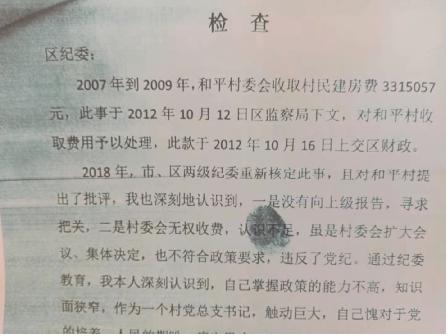 检 查
区纪委：
2007 年到 2009 年，和平村委会收取村民建房费 3315057
元，此事于 2012 年 10 月 12 日区监察局下文，对和平村收
取费用予以处理，此款于 2012 年 10 月 16 日上交区财政。
2018 年，市、区两级纪委重新核定此事，且对和平村提
出了批评，我也深刻地认识到，一是没有向上级报告，寻求
把关，二是村委会无权收费，认识不足，虽是村委会扩大会
议、集体决定，也不符合政策要求，违反了党纪。通过纪委
教育，我本人深刻认识到，自己掌握政策的能力不高，知识
面狭窄，作为一个村党总支书记，触动巨大，自己愧对于党